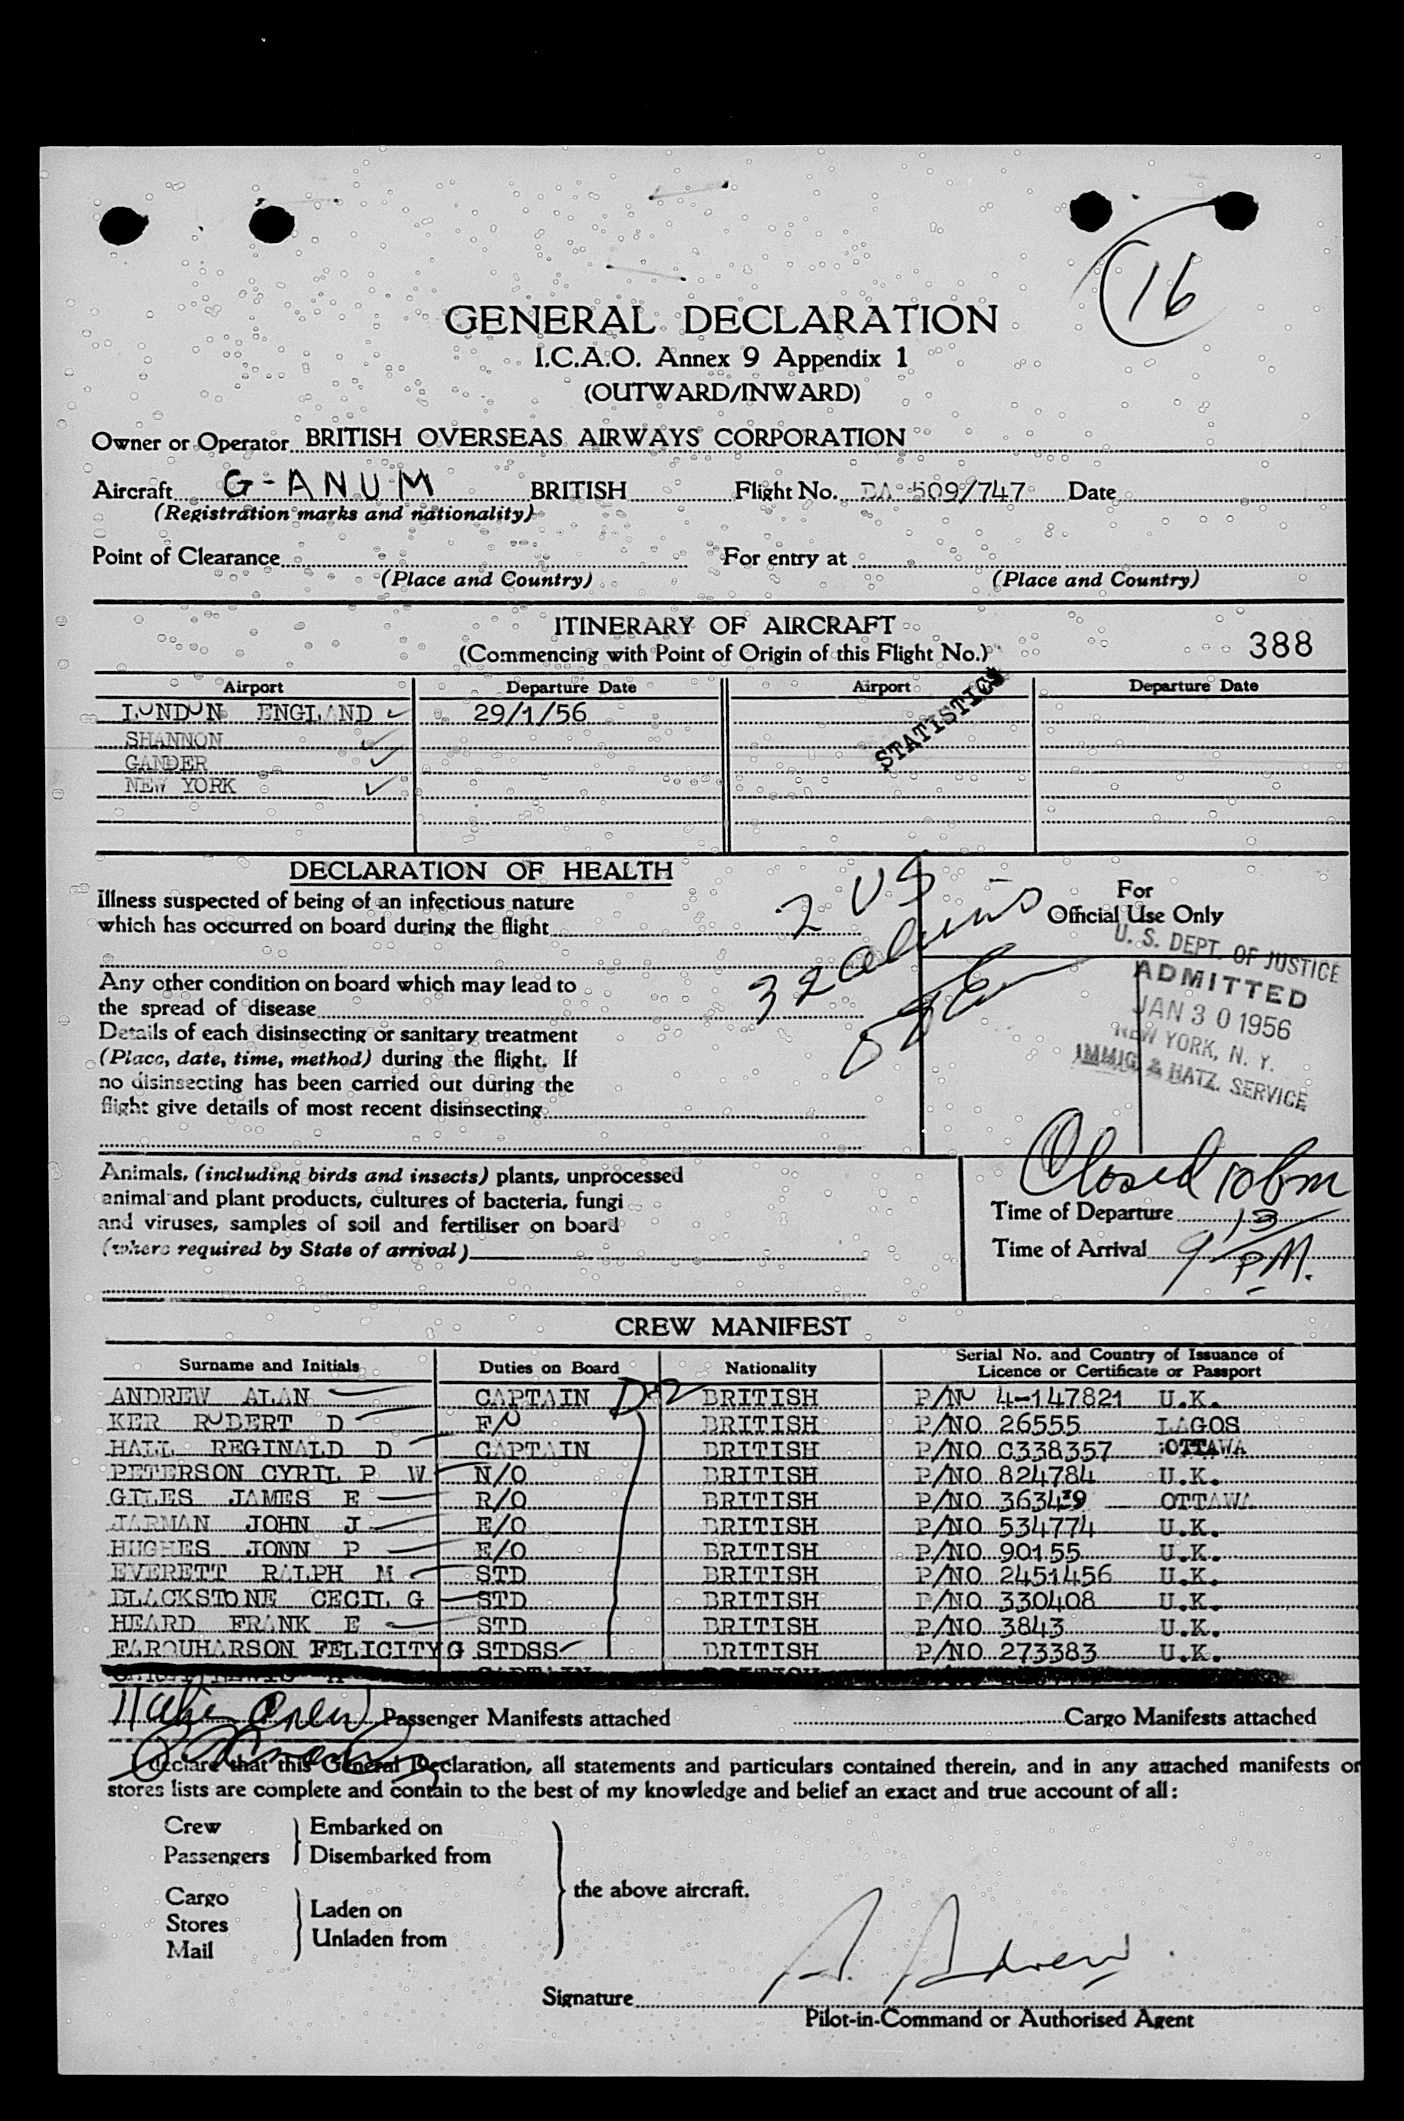 16
GENERAL DECLARATION
I.C.A.O. Annex 9 Appendix 1
(OUTWARD/INWARD)
Owner or Operator BRITISH OVERSEAS AIRWAYS CORPORATION
Aircraft G-ANUM BRITISH Flight No. BA 509/747 Date
(Registration marks and nationality)
Point of Clearance For entry at
(Place and Country) (Place and Country)
ITINERARY OF AIRCRAFT
(Commencing with Point of Origin of this Flight No.) 388
Airport Departure Date Airport Departure Date
LONDON ENGLAND 29/1/56
STATISTICS
SHANNON
GANDER
NEW YORK
DECLARATION OF HEALTH
Illness suspected of being of an infectious nature
which has occurred on board during the flight
2 US
32 aliens
For
Official Use Only
Any other condition on board which may lead to
the spread of disease
Details of each disinsecting or sanitary treatment
(Place, date, time, method) during the flight. If
no disinsecting has been carried out during the
flight give details of most recent disinsecting
U. S. DEPT. OF JUSTICE
ADMITTED
JAN 30 1956
NEW YORK, N. Y.
IMMIG. & NATZ. SERVICE
Animals, (including birds and insects) plants, unprocessed
animal and plant products, cultures of bacteria, fungi
and viruses, samples of soil and fertiliser on board
(where required by State of arrival)
Closed 10 pm
Time of Departure
Time of Arrival 9 13/PM.
CREW MANIFEST
Surname and Initials Duties on Board Nationality Serial No. and Country of Issuance of
Licence or Certificate or Passport
ANDREW ALAN CAPTAIN D-2 BRITISH P/NO 4-147821 U.K.
KER ROBERT D F/O BRITISH P/NO 26555 LAGOS
HALL REGINALD D CAPTAIN BRITISH P/NO C338357 OTTAWA
PETERSON CYRIL P W N/O BRITISH P/NO 824784 U.K.
GILES JAMES E R/O BRITISH P/NO 363439 OTTAWA
JARMAN JOHN J E/O BRITISH P/NO 534774 U.K.
HUGHES JONN P E/O BRITISH P/NO 90155 U.K.
EVERETT RALPH M STD BRITISH P/NO 2451456 U.K.
BLACKSTONE CECIL G STD BRITISH P/NO 330408 U.K.
HEARD FRANK E STD BRITISH P/NO 3843 U.K.
FARQUHARSON FELICITY G STDSS BRITISH P/NO 273383 U.K.
11 Crew Passenger Manifests attached Cargo Manifests attached
declare that this General Declaration, all statements and particulars contained therein, and in any attached manifests or
stores lists are complete and contain to the best of my knowledge and belief an exact and true account of all:
Crew Embarked on
Passengers Disembarked from
the above aircraft.
Cargo
Stores Laden on
Mail Unladen from
Signature A. Andrew
Pilot-in-Command or Authorised Agent